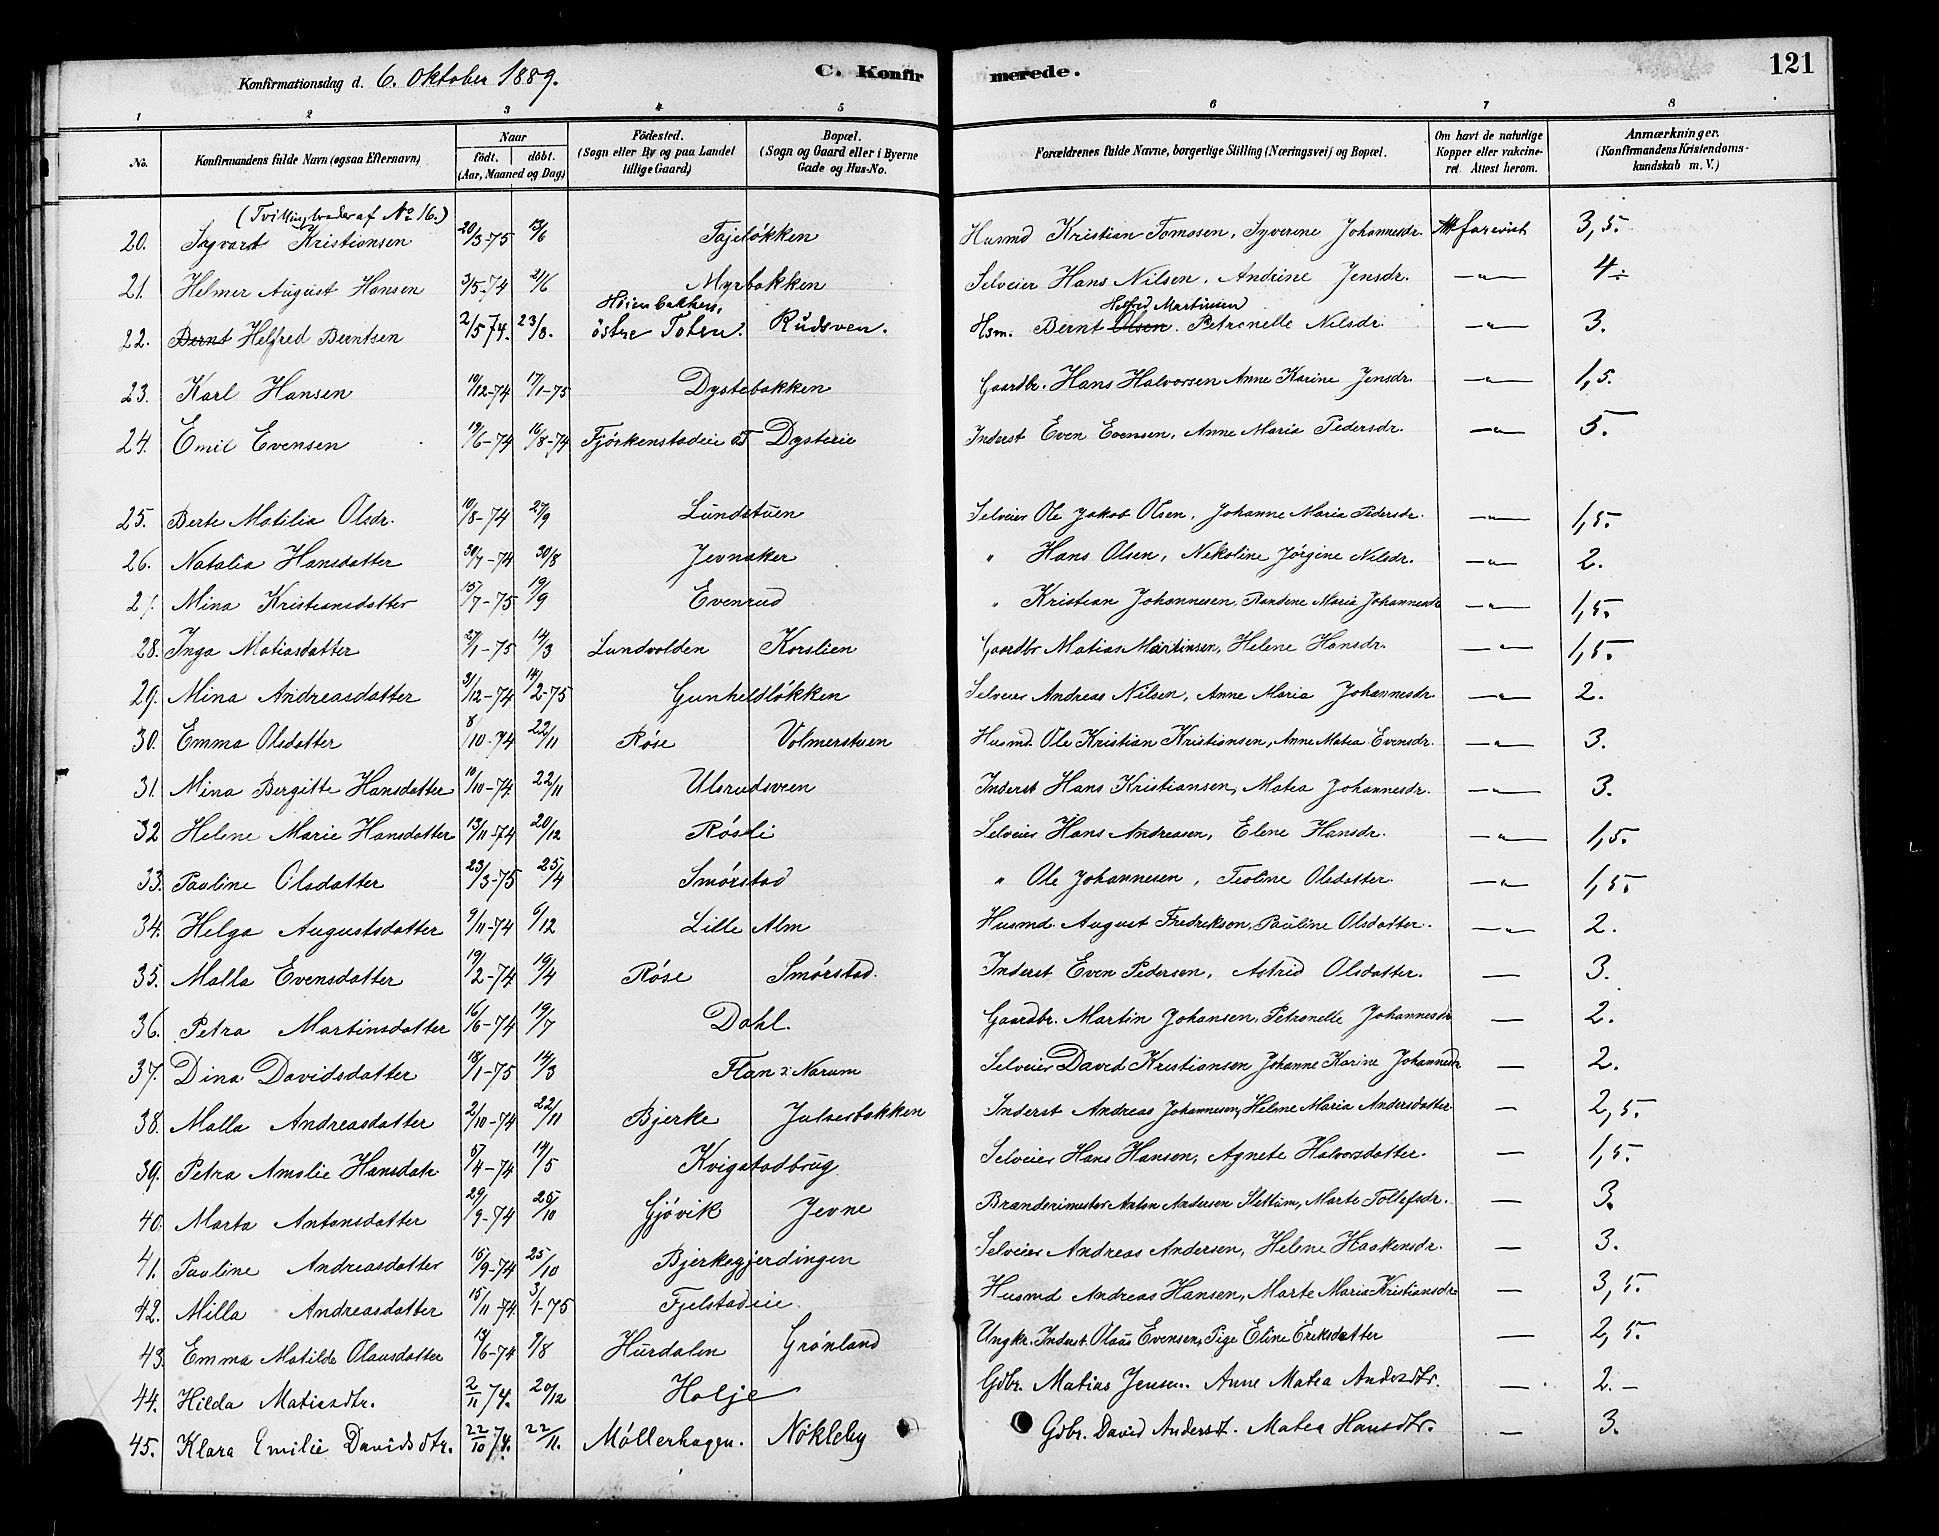 Konfirmationsdag d. 6. Oktober 1889. C. Konfirmerede. 121
1 2 3 4 5 6 7 8
No. Konfirmandens fulde Navn (ogsaa Efternavn) Naar födt. döbt. (Aar, Maaned og Dag) Födested. (Sogn eller By og paa Landet tillige Gaard) Bopæl. (Sogn og Gaard eller i Byerne Gade og Hus-No. Forældrenes fulde Navne, borgerlige Stilling (Næringsvei) og Bopæl. Om havt de naturlige Kopper eller vakcineret. Attest herom. Anmærkninger. (Konfirmandens Kristendomskundskab m. V.)
(Tvillingbroder af No 16.)
20. Sigvart Kristiansen 20/3-75 13/6 Tajeløkken Husmd Kristian Tomasen, Syverine Johannesdr. Att forevist 3,5.
21. Helmer August Hansen 3/5-74 21/6 Myrbakken Selveier Hans Nilsen, Andrine Jensdr. —"— 4÷
22. Bernt Helfred Berntsen 2/5 74. 23/8. Höienbakken, östre Toten. Rudsven. Hsm. Bernt Olsen Helfred Martinsen. Petronelle Nilsdr. —"— 3.
23. Karl Hansen 10/12-74 17/1-75 Dystebakken Gaardbr. Hans Halvorsen Anne Karine Jensdr. —"— 1,5.
24. Emil Evensen 19/6-74 16/8-74 Fjöskenstadeie ØT Dysterie Inderst Even Evensen, Anne Maria Pedersdr. —"— 5.
25. Berte Matilia Olsdr. 10/8-74 27/9 Lundstuen Selveier Ole Jakob Olsen, Johanne Maria Pedersdr. —"— 1,5.
26. Natalia Hansdatter 30/7-74 30/8 Jevnaker " Hans Olsen, Nikoline Jørgine Nilsdr. —"— 2.
27. Mina Kristiansdatter 15/7-75 19/9 Evenrud " Kristian Johannesen, Randene Maria Johannesdr —"— 1,5.
28. Inga Matiasdatter 27/1-75 14/3 Lundvolden Korslien Gaardbr Matias Martinsen, Helene Hansdr. —"— 1,5.
29. Mina Andreasdatter 31/12-74 14/2-75 Gunheldløkken Selveier Andreas Nilsen, Anne Maria Johannesdr —"— 2.
30. Emma Olsdatter 8/10-74 22/11 Røse Volmerstuen Husmd. Ole Kristian Kristiansen, Anne Matea Evensdr. —"— 3.
31. Mina Bergitte Hansdatter 10/10-74 22/11 Ulsrudsveen Inderst Hans Kristiansen, Matea Johannesdr. —"— 3.
32 Helene Marie Hansdatter 13/11-74 20/12 Røsli Selveier Hans Andreasen, Elene Hansdr. —"— 1,5.
33. Pauline Olsdatter 23/3-75 25/4 Smørstad " Ole Johannesen, Teoline Olsdatter. —"— 1,5.
34. Helga Augustsdatter 9/11-74 6/12 Lille Alm Husmd. August Fredriksen, Pauline Olsdatter. —"— 2.
35. Malla Evensdatter 19/2-74 19/4 Røse Smørstad. Inderst Even Pedersen, Astrid Olsdatter. — 3.
36. Petra Martinsdatter 16/6-74 19/7 Dahl. Gaardbr. Martin Johansen, Petronelle Johannesdr — 2.
37. Dina Davidsdatter 18/1-75 14/3 Narum Selveier David Kristiansen Johanne Karine Johannesdr — 2.
38. Malla Andreasdatter 2/10-74 22/11 Bjerke Julsetbakken Inderst Andreas Johannesen, Helene Maria Andersdatter — 2,5.
39. Petra Amalie Hansdatr 5/4-74 17/5 Kvigstadbrug Selveier Hans Hansen, Agnete Halvorsdatter. — 1,5.
40. Marta Antonsdatter 29/9-74 25/10 Gjøvik Jevne Brænderimester Anton Andersen Slettum, Marte Tollefsdr. — 3.
41. Pauline Andreasdatter 15/9-74 25/10 Bjerkegjerdingen Selveier Andreas Andersen, Helene Haakensdr. — 3.
42. Milla Andreasdatter 15/11-74 3/1-75 Fjelstadeie Husmd Andreas Hansen, Marte Maria Kristiansdr — 3,5.
43. Emma Matilde Olausdatter 13/6-74 9/8 Hurdalen Grønland Ungkr. Inderst Olaus Evensen, Pige Eline Eriksdatter — 2,5.
44. Hilda Matiasdtr. 2/11 74. 20/12 Holje Gdbr. Matias Jensen. Anne Matea Andersdtr. — 2.-
45. Klara Emilie Davidsdtr. 22/10 74. 22/11. Møllerhagen. Nökleby Gdbr. David Anders. Matea Hansdtr. — 3.